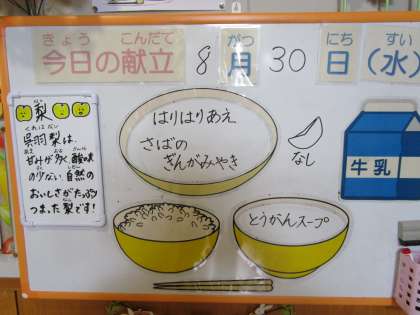 きょう こんだて がつ にち すい
今日の献立 8月30日(水)
なし
梨
くれは なし
呉羽梨は、
あま おお さんみ
甘みが多く酸味
すく しぜん
の少ない自然の
おいしさがたっぷり
なし
つまった梨です!
はりはりあえ
さばの
ぎんがみやき
なし
牛乳
とうがんスープ